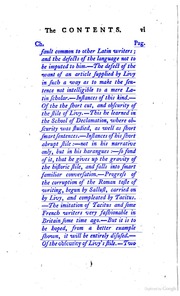 The CONTENTS. vi
Ch. Pag.
fault common to other Latin writers;
and the defects of the language not to
be imputed to him.—The defect of the
want of an article supplied by Livy
in such a way as to make the sen-
tence not intelligible to a mere La-
tin scholar.—Instances of this kind.—
Of the short cut, and obscurity of
the stile of Livy.—This he learned in
the School of Declamation, where ob-
scurity was studied, as well as short
smart sentences.—Instances of his short
abrupt stile:—not in his narrative
only, but in his harangues:—so fond
of it, that he gives up the gravity of
the historic stile, and falls into smart
familiar conversation.—Progress of
the corruption of the Roman taste of
writing, begun by Sallust, carried on
by Livy, and compleated by Tacitus.
—The imitation of Tacitus and some
French writers very fashionable in
Britain some time ago.—But it is to
be hoped, from a better example
shown, it will be entirely disused.—
Of the obscurity of Livy's stile.—Two